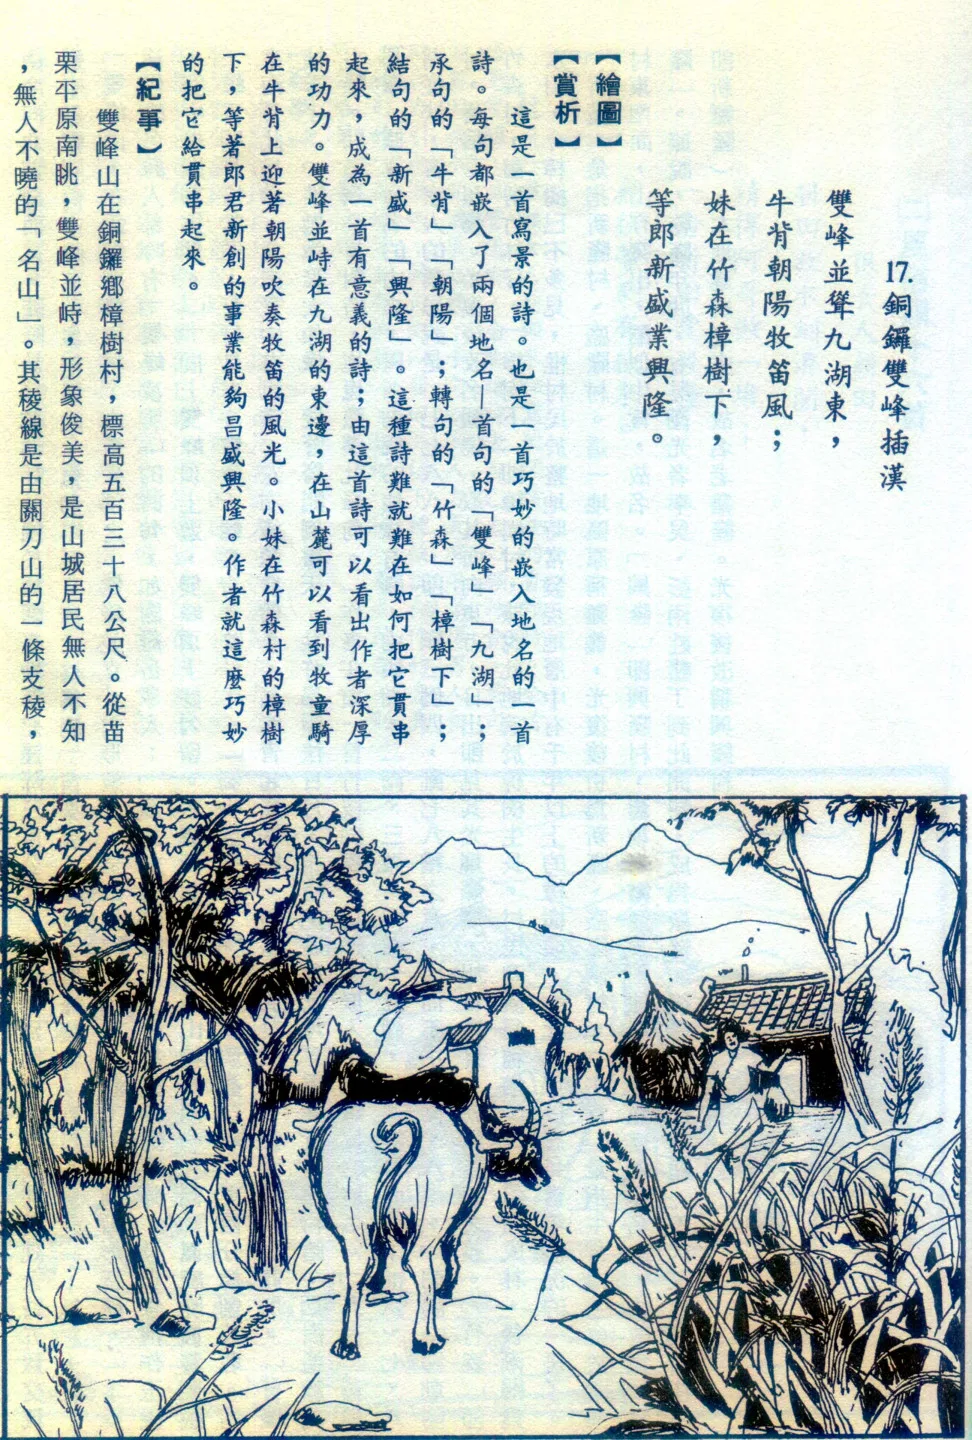 17.銅鑼雙峰插漢
雙峰並聳九湖東，
牛背朝陽牧笛風；
妹在竹森樟樹下，
等郎新盛業興隆。
【繪圖】
【賞析】
這是一首寫景的詩。也是一首巧妙的嵌入地名的一首
詩。每句都嵌入了兩個地名—首句的「雙峰」「九湖」；
承句的「牛背」「朝陽」；轉句的「竹森」「樟樹下」；
結句的「新盛」「興隆」。這種詩難就難在如何把它貫串
起來，成為一首有意義的詩；由這首詩可以看出作者深厚
的功力。雙峰並峙在九湖的東邊，在山麓可以看到牧童騎
在牛背上迎著朝陽吹奏牧笛的風光。小妹在竹森村的樟樹
下，等著郎君新創的事業能夠昌盛興隆。作者就這麼巧妙
的把它給貫串起來。
【紀事】
雙峰山在銅鑼鄉樟樹村，標高五百三十八公尺。從苗
栗平原南眺，雙峰並峙，形象俊美，是山城居民無人不知
，無人不曉的「名山」。其稜線是由關刀山的一條支稜，